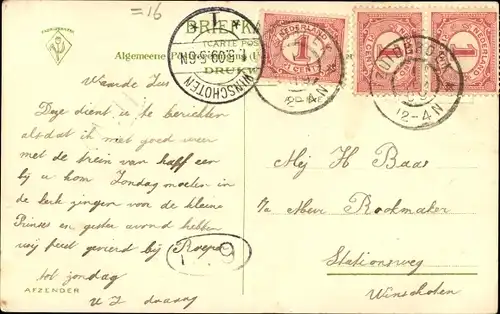 =16
BRIEFKA
(CARTE POS
Algemeene Po
DRUK
WINSCHOTEN
5-6N
NEDERLAND
1
CENT
ZUIDBROEK
12-4N
Waarde Zus
Deze dient is te berichten
alsdat ik niet goed weer
met de trein van half een
bij u kom Zondag moeten in
de kerk zingen voor de kleine
Prinses en gister avond hebben
wij feest gevierd bij
tot zondag
AFZENDER
Mej H Baas
p/a Mevr Rookmaker
Stationsweg
Winschoten